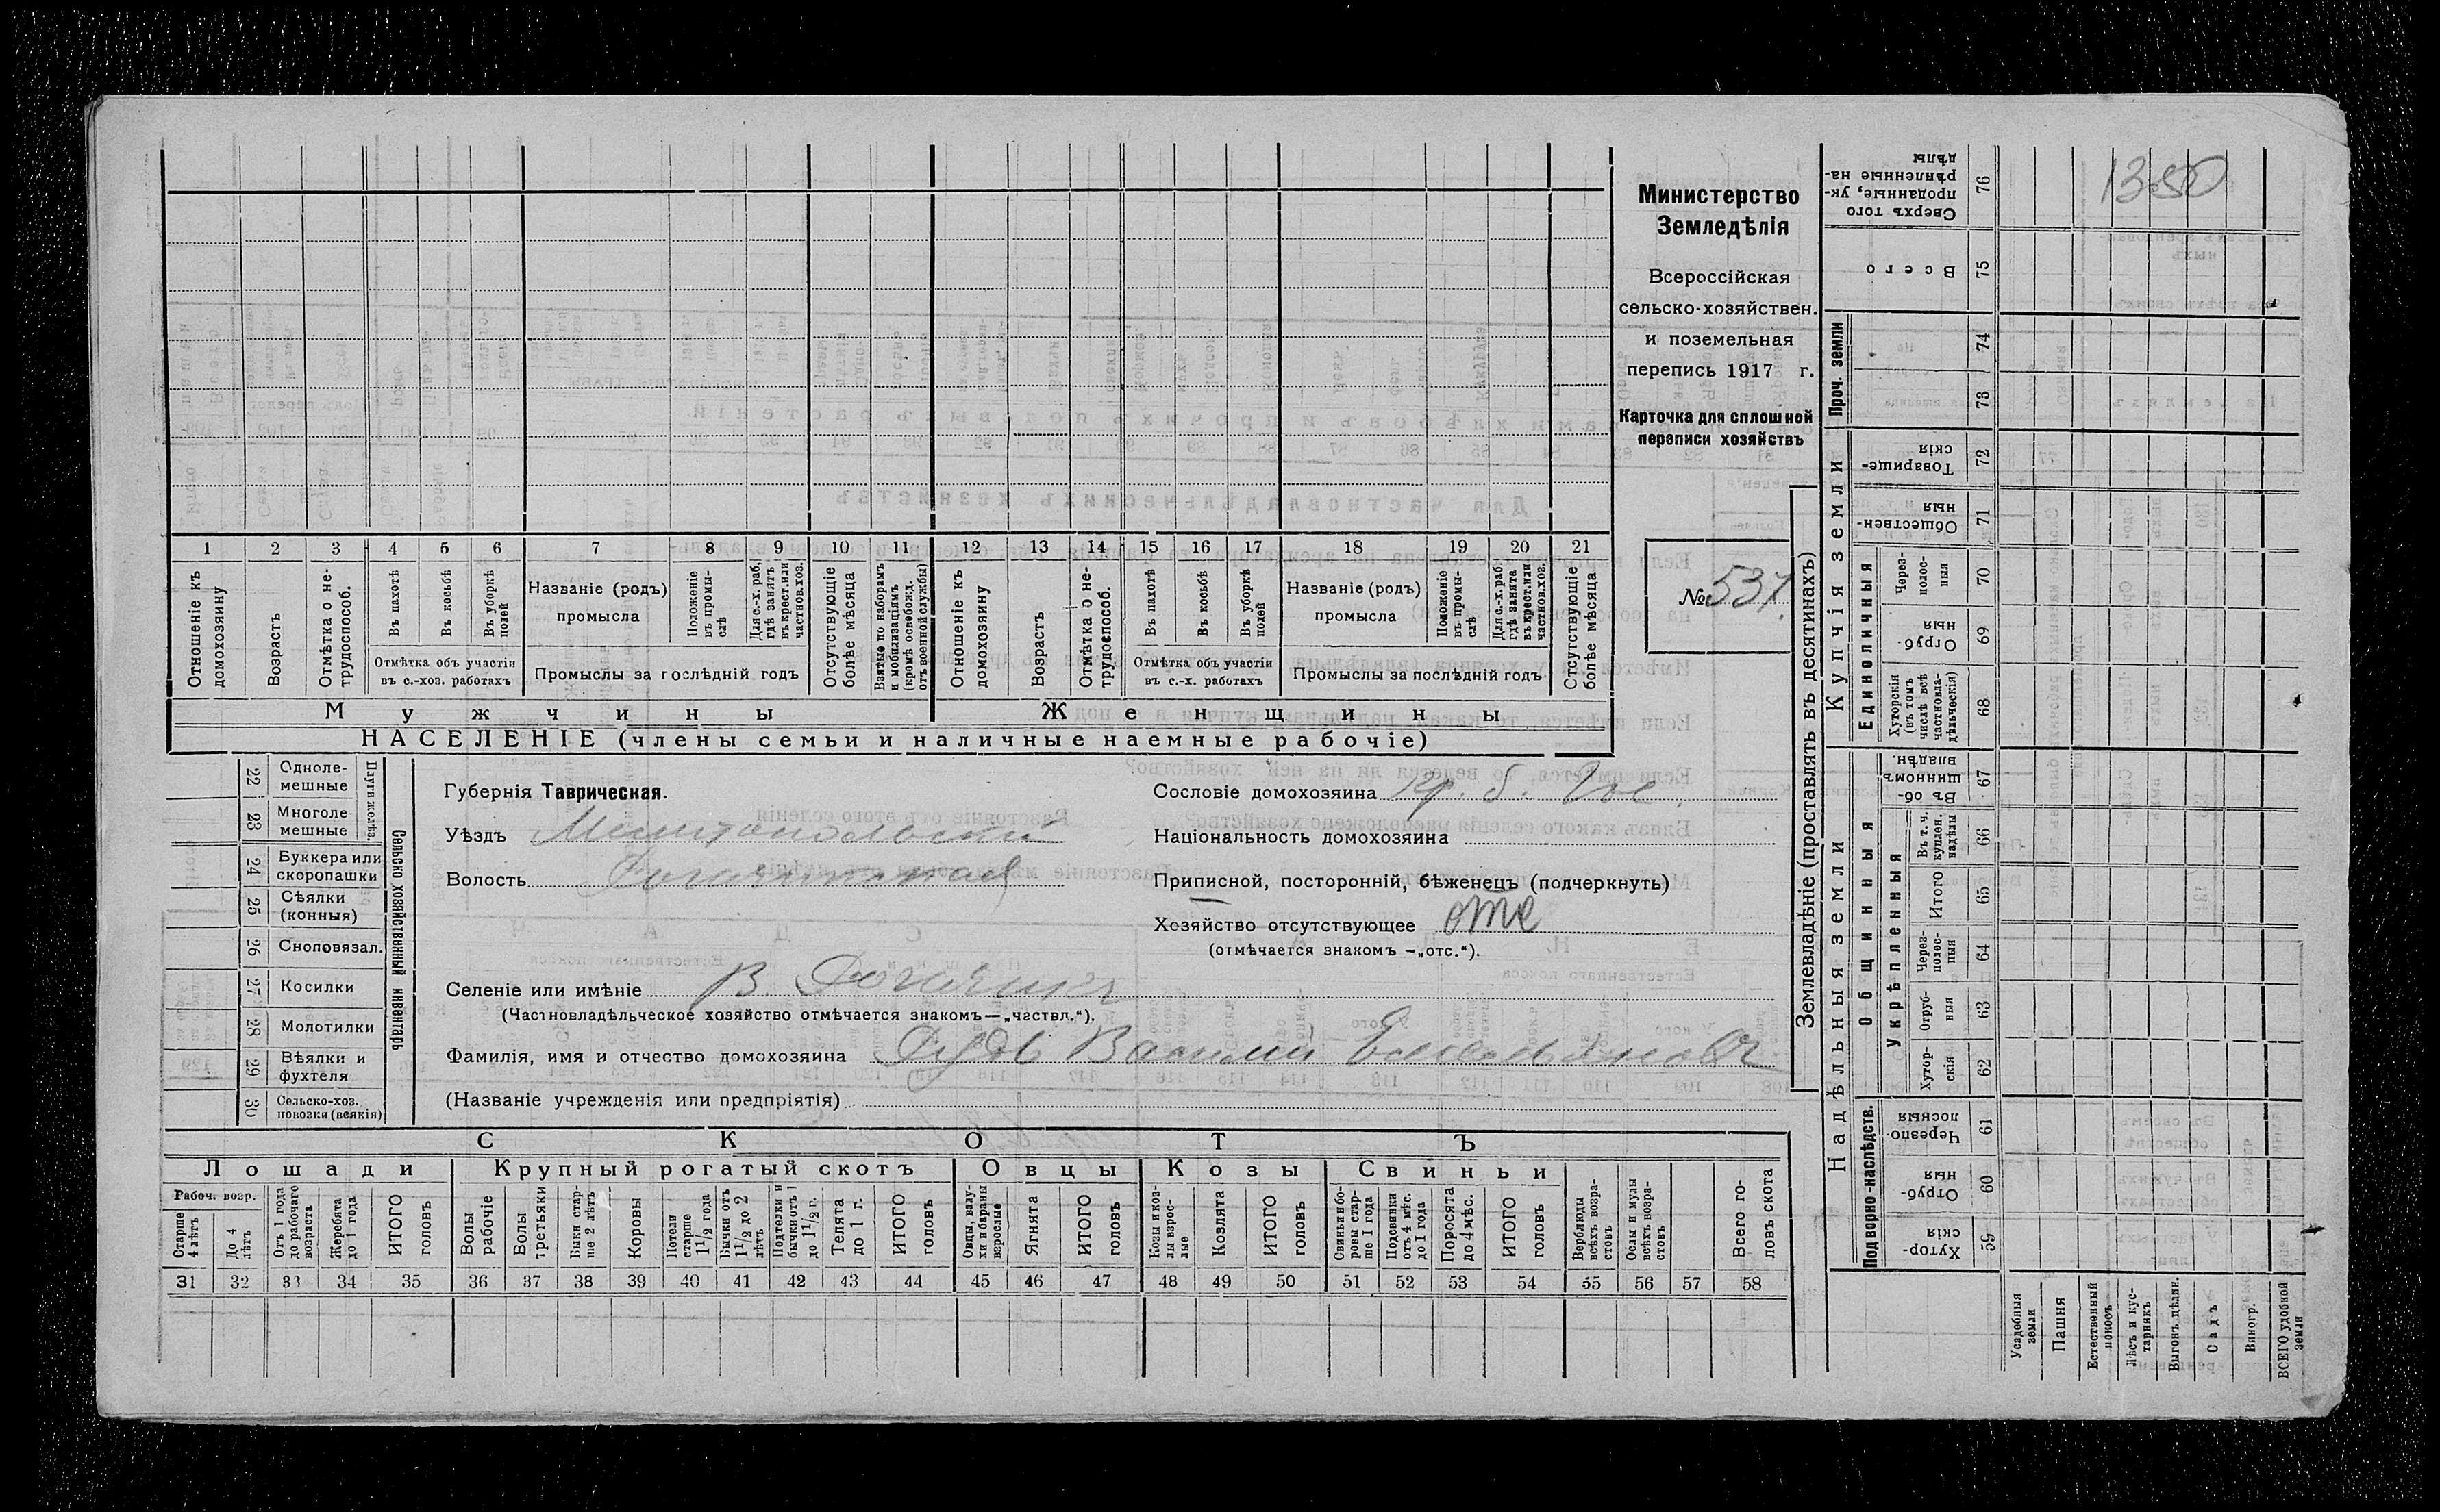 Министерство
Земледѣлія
Всероссійская
сельско-хозяйствен.
и поземельная
перепись 1917 г.
Карточка для сплошной
переписи хозяйствъ
№ 537
1350
1 2 3 4 5 6 7 8 9 10 11 12 13 14 15 16 17 18 19 20 21
Отношеніе къ домохозяину
Возрастъ
Отмѣтка о не-трудоспособ.
Въ пахотѣ
Въ косьбѣ
Въ уборкѣ полей
Отмѣтка объ участіи
въ с.-хоз. работахъ
Названіе (родъ)
промысла
Положеніе въ промы-слѣ
Для с.-х. раб. гдѣ занятъ въ крест. или частнов. хоз.
Промыслы за послѣдній годъ
Отсутствующіе болѣе мѣсяца
Взятые по наборамъ и мобилизаціямъ (кромѣ освобожд. отъ военной службы)
Отношеніе къ домохозяину
Возрастъ
Отмѣтка о не-трудоспособ.
Въ пахотѣ
Въ косьбѣ
Въ уборкѣ полей
Отмѣтка объ участіи
въ с.-х. работахъ
Названіе (родъ)
промысла
Положеніе въ промы-слѣ
Для с.-х. раб. гдѣ занята въ крест. или частнов. хоз.
Промыслы за послѣдній годъ
Отсутствующіе болѣе мѣсяца
Мужчины
Женщины
НАСЕЛЕНІЕ (члены семьи и наличные наемные рабочіе)
Сельско хозяйственный инвентарь
Плуги желѣз.
22 Одноле-мешные
23 Многоле мешные
24 Буккера или скоропашки
25 Сѣялки (конныя)
26 Сноповязал.
27 Косилки
28 Молотилки
29 Вѣялки и фухтеля
30 Сельско-хоз. повозки (всякія)
Губернія Таврическая.
Уѣздъ Мелитопольскій
Волость
Сословіе домохозяина кр.
Національность домохозяина
Приписной, посторонній, бѣженецъ (подчеркнуть)
Хозяйство отсутствующее отс
(отмѣчается знакомъ —„отс.“).
Селеніе или имѣніе В. Рогачикъ
(Частновладѣльческое хозяйство отмѣчается знакомъ—„частвл.“).
Фамилія, имя и отчество домохозяина Василій Емельяновъ
(Названіе учрежденія или предпріятія)
СКОТЪ
Лошади
Крупный рогатый скотъ
Овцы
Козы
Свиньи
Рабоч. возр.
Старше 4 лѣтъ
До 4 лѣтъ
Отъ 1 года до рабочаго возраста
Жеребята до 1 года
ИТОГО головъ
Волы рабочіе
Волы третьяки
Быки стар-ше 2 лѣтъ
Коровы
Нетели старше 1½ года
Бычки отъ 1½ до 2 лѣтъ
Подтелки и бычки отъ 1 до 1½ г.
Телята до 1 г.
ИТОГО головъ
Овцы, валу-хи и бараны взрослые
Ягнята
ИТОГО головъ
Козы и коз-лы взрос-лые
Козлята
ИТОГО головъ
Свиньи и бо-ровы стар-ше 1 года
Подсвинки отъ 4 мѣс. до 1 года
Поросята до 4 мѣс.
ИТОГО головъ
Верблюды всѣхъ возра-стовъ
Ослы и мулы всѣхъ возра-стовъ
Всего го-ловъ скота
31 32 33 34 35 36 37 38 39 40 41 42 43 44 45 46 47 48 49 50 51 52 53 54 55 56 57 58
Землевладѣніе (проставлять въ десятинахъ)
Надѣльныя земли
Купчія земли
Проч. земли
Подворно-наслѣдств.
Общинныя
Укрѣпленныя
Единоличныя
Сверхъ того проданные, ук-рѣпленные на-дѣлы 76
Всего 75
74
73
Товарище-скія 72
Обществен-ныя 71
Через-полос-ныя 70
Отруб-ныя 69
Хуторскія (въ томъ числѣ всѣ частновла-дѣльческія) 68
Въ об-щинномъ владѣн. 67
Въ т. ч. куплен. надѣлы 66
Итого 65
Через-полос-ныя 64
Отруб-ныя 63
Хутор-скія 62
Черезпо-лосныя 61
Отруб-ныя 60
Хутор-скія 59
Усадебныя земли
Пашня
Естественный покосъ
Лѣсъ и кус-тарникъ
Выгонъ цѣлин.
Садъ
Виногр.
ВСЕГО удобной земли